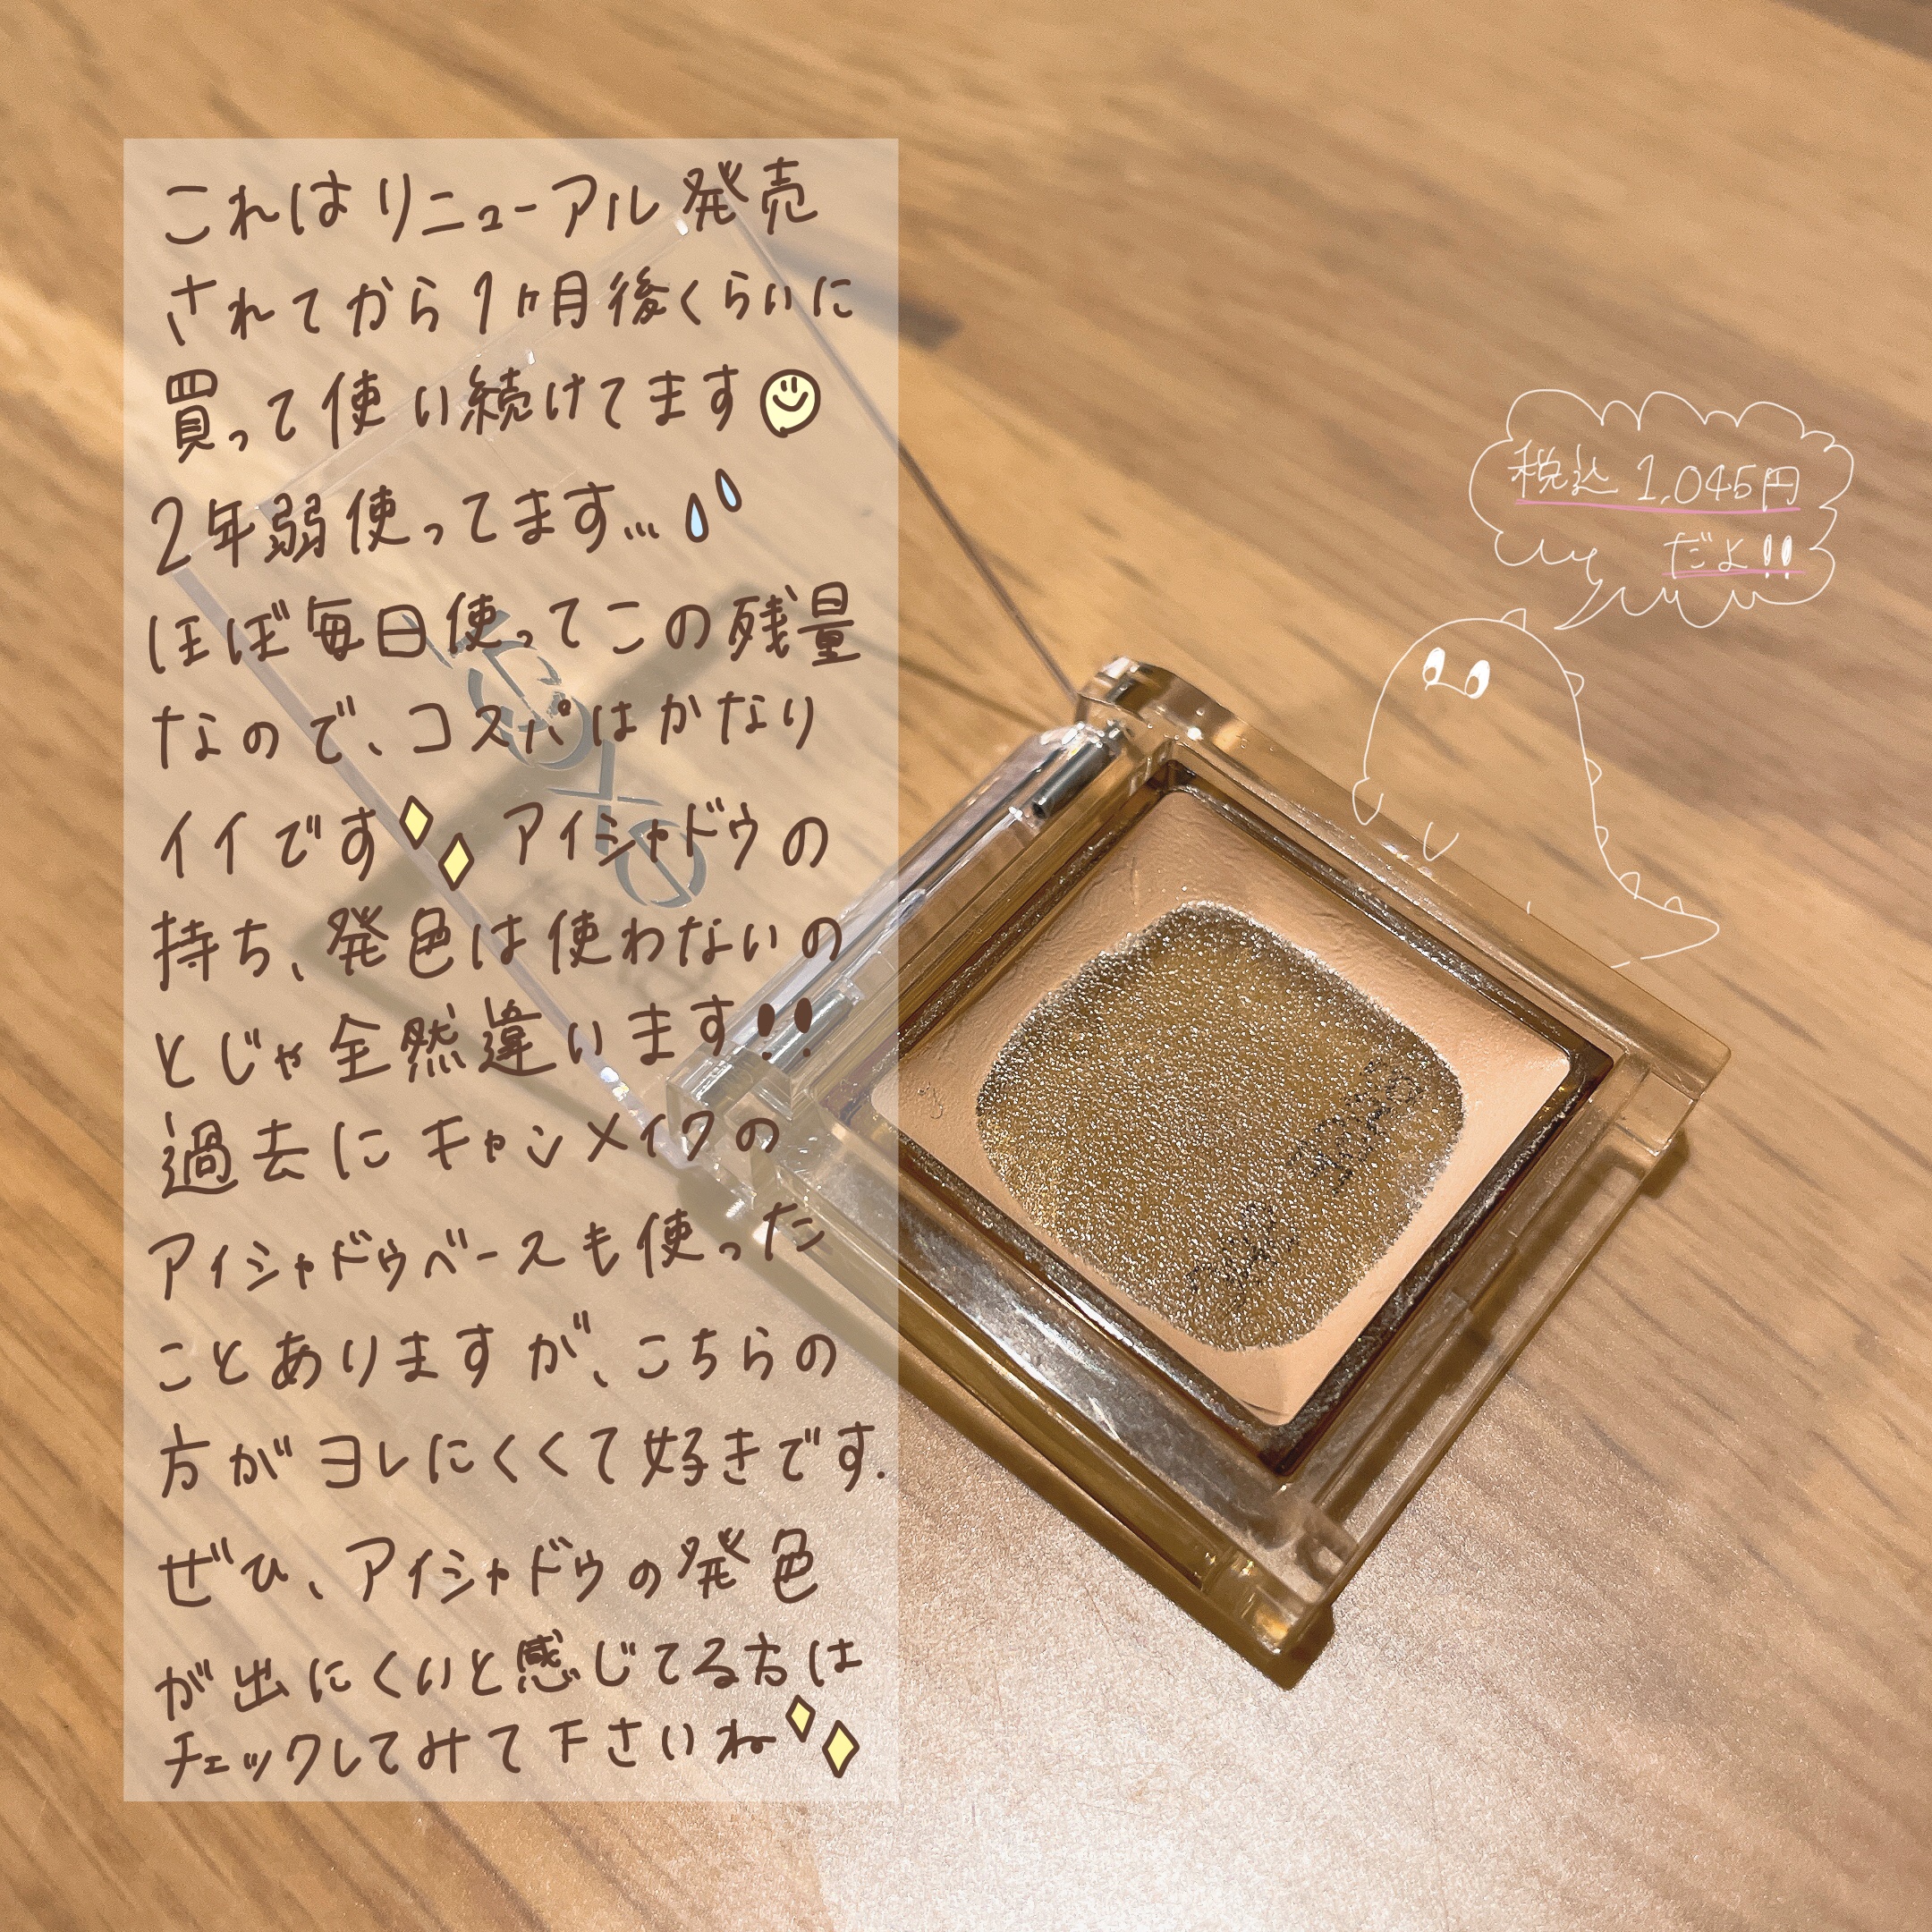 これはリニューアル発売
されてから1ヶ月後くらいに
買って使い続けてます
2年弱使ってます...
ほぼ毎日使ってこの残量
なので、コスパはかなり
イイです アイシャドウの
持ち、発色は使わないの
とじゃ全然違います!!
過去にキャンメイクの
アイシャドウベースも使った
ことありますが、こちらの
方がヨレにくくて好きです.
ぜひ、アイシャドウの発色
が出にくいと感じてる方は
チェックしてみて下さいね
税込 1,045円
だよ!!